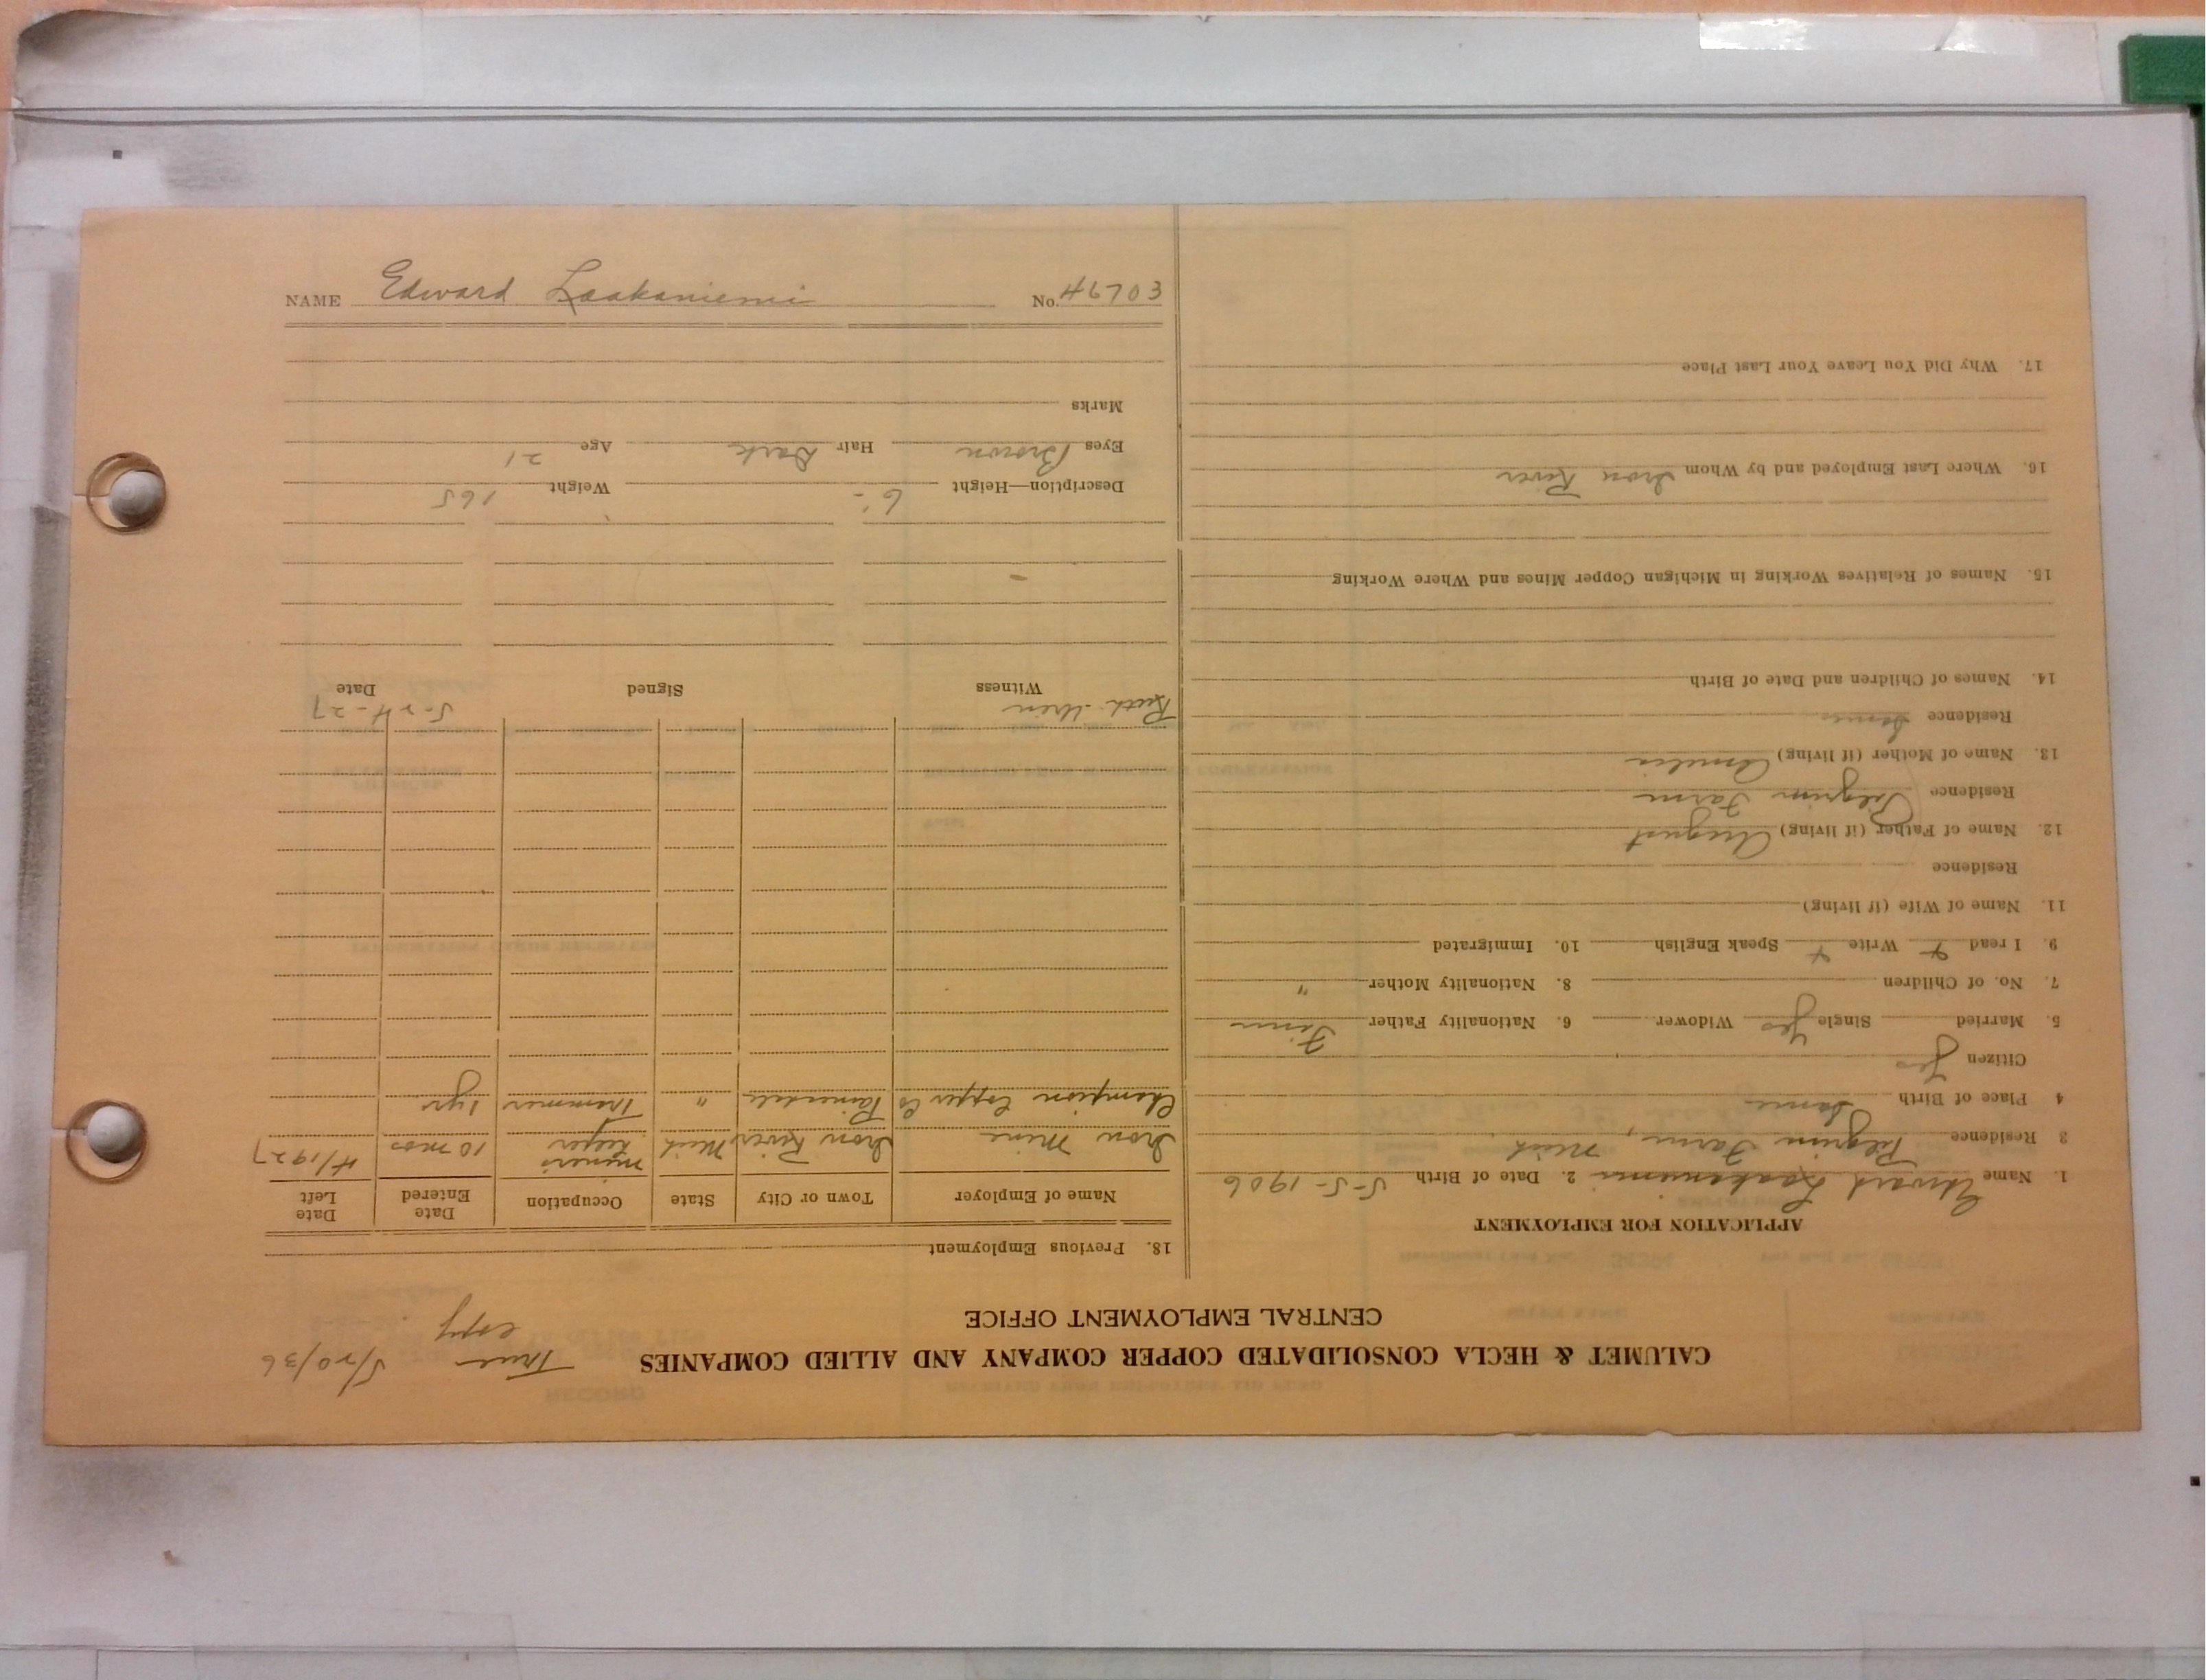 CALUMET & HECLA CONSOLIDATED COPPER COMPANY AND ALLIED COMPANIES
CENTRAL EMPLOYMENT OFFICE
True copy
5/20/36
APPLICATION FOR EMPLOYMENT
1. Name Edward Laakaniemi 2. Date of Birth 5-5-1906
3 Residence Pilgrim Farm, Mich
4 Place of Birth Same
Citizen Yes
5. Married Single Yes Widower 6. Nationality Father Finn
7. No. of Children 8. Nationality Mother "
9. I read Write Speak English 10. Immigrated
11. Name of Wife (if living)
Residence
12. Name of Father (if living) August
Residence Pilgrim Farm
13. Name of Mother (if living) Amelia
Residence Same
14. Names of Children and Date of Birth
15. Names of Relatives Working in Michigan Copper Mines and Where Working
16. Where Last Employed and by Whom Iron River
17. Why Did You Leave Your Last Place
18. Previous Employment
Name of Employer Town or City State Occupation Date Entered Date Left
Iron Mine Iron River Mich Miner's Helper 10 mos 4/1927
Champion Copper Co Painesdale " Trammer 1 yr
Ruth 5-24-27
Witness Signed Date
Description—Height 6- Weight 165
Eyes Brown Hair Dark Age 21
Marks
NAME Edward Laakaniemi No. 46703